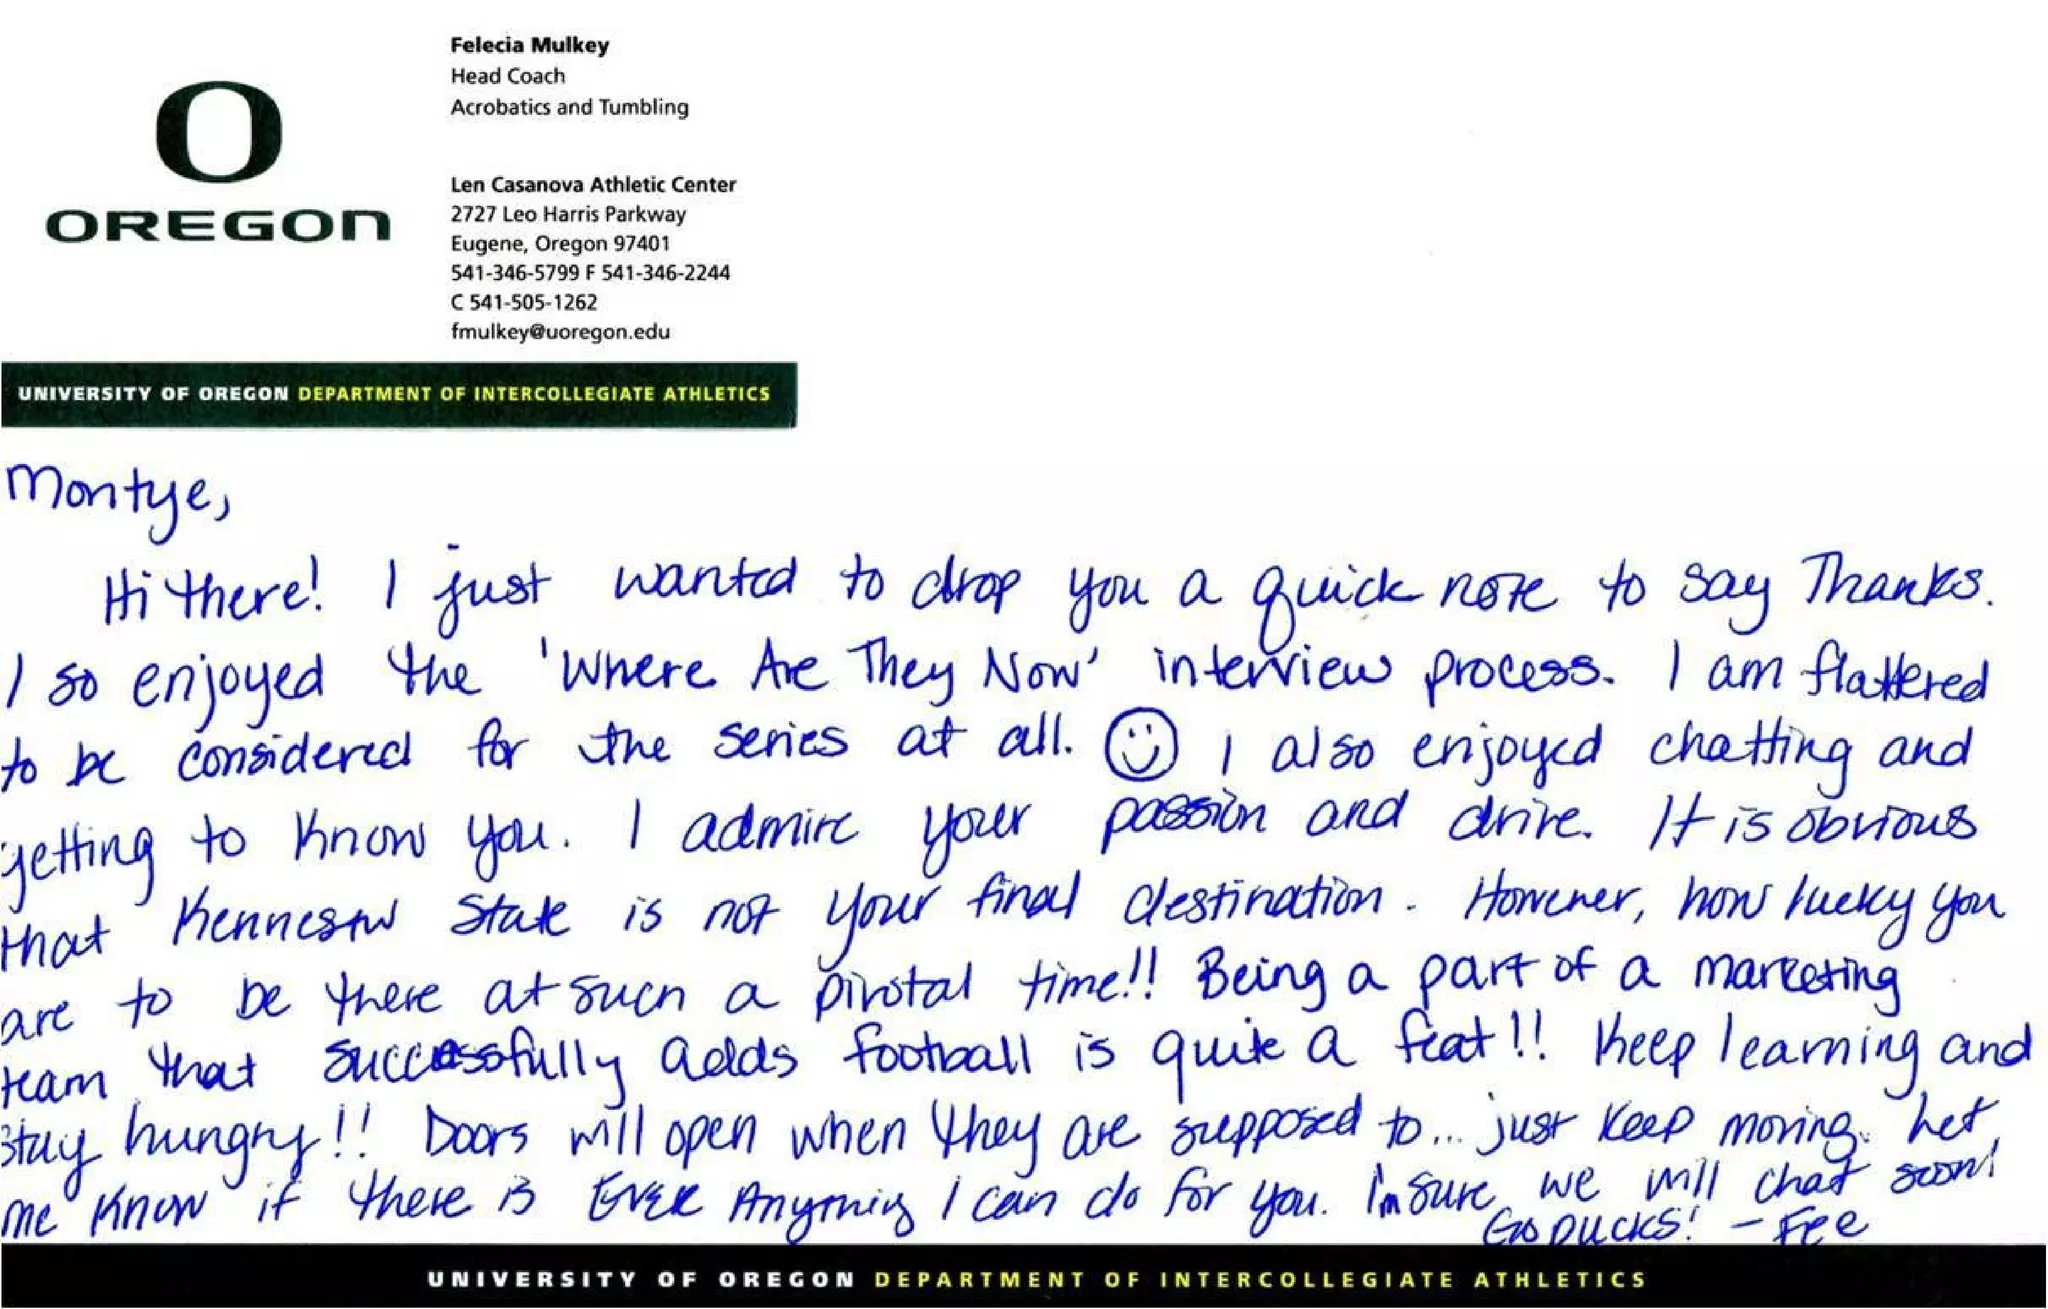 Felecia Mulkey
Head Coach
Acrobatics and Tumbling
O
OREGON
Len Casanova Athletic Center
2727 Leo Harris Parkway
Eugene, Oregon 97401
541-346-5799 F 541-346-2244
C 541-505-1262
fmulkey@uoregon.edu
UNIVERSITY OF OREGON DEPARTMENT OF INTERCOLLEGIATE ATHLETICS
Montye,
Hi there! I just wanted to drop you a quick note to say Thanks.
I so enjoyed the 'Where Are They Now' interview process. I am flattered
to be considered for the series at all. I also enjoyed chatting and
getting to know you. I admire your passion and drive. It is obvious
that Kennesaw State is not your final destination. However, how lucky you
are to be there at such a pivotal time!! Being a part of a marketing
team that successfully adds football is quite a feat!! Keep learning and
stay hungry!! Doors will open when they are supposed to... just keep moving. Let
me know if there is EVER Anything I can do for you. I'm sure we will chat soon!
Go DUCKS! - Fee
UNIVERSITY OF OREGON DEPARTMENT OF INTERCOLLEGIATE ATHLETICS